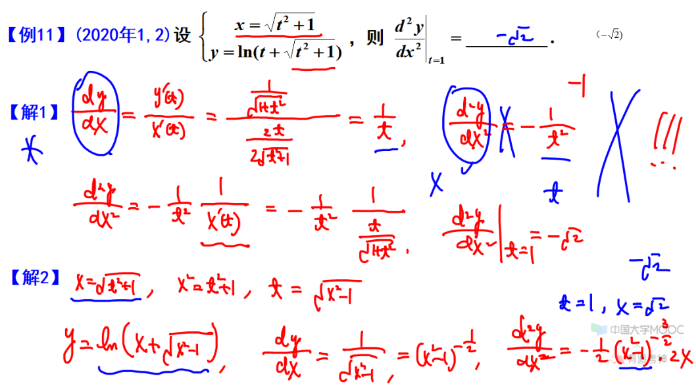 【例11】(2020年1,2) 设 { x = √(t²+1) y = ln(t + √(t²+1)) , 则 d²y/dx² |_{t=1} = -√2 . (-√2)
【解1】 dy/dx = y'(t)/x'(t) = (1/√(1+t²))/(2t/(2√(t²+1))) = 1/t , d²y/dx² = -1/t² -1 !!!
d²y/dx² = -1/t² 1/x'(t) = -1/t² 1/(t/√(1+t²)) , d²y/dx² |_{t=1} = -√2
X t
【解2】 x=√(t²+1) , x²=t²+1 , t = √(x²-1) -√2
t=1 , x=√2
中国大学MOOC
y=ln(x+√(x²-1)) , dy/dx = 1/√(x²-1) = (x²-1)^{-1/2} , d²y/dx² = -1/2 (x²-1)^{-3/2} 2x